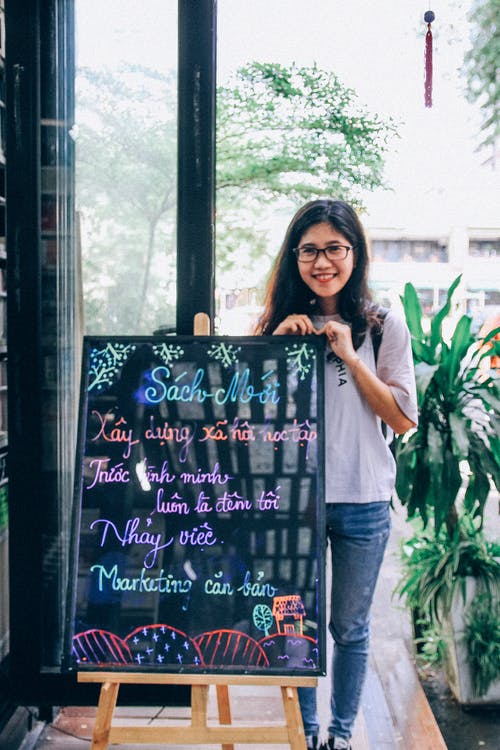 Sách Mới
Xây dựng xã hội học tập
Trước bình minh
luôn là đêm tối
Nhảy việc.
Marketing căn bản
PHIA